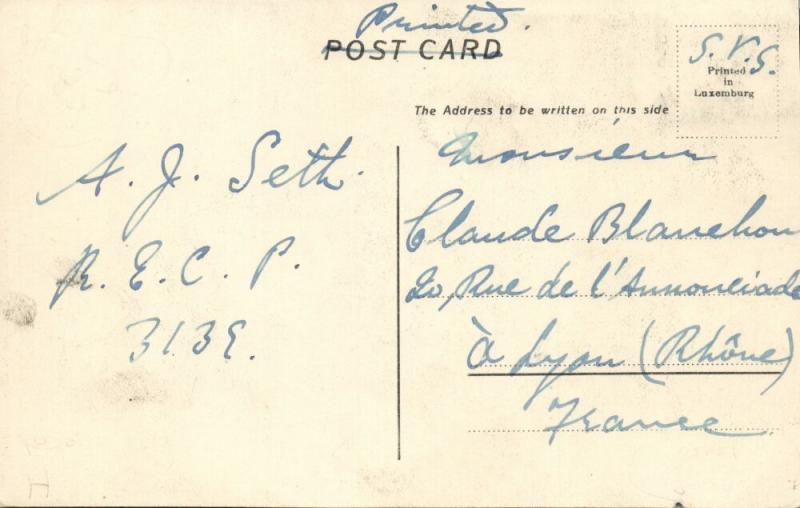 Printed.
POST CARD
S.V.S.
Printed
in
Luxemburg
The Address to be written on this side
A. J. Seth.
R. E. C. P.
3139.
Monsieur
Claude Blanchon
20, Rue de l'Annonciade
à Lyon (Rhône)
France